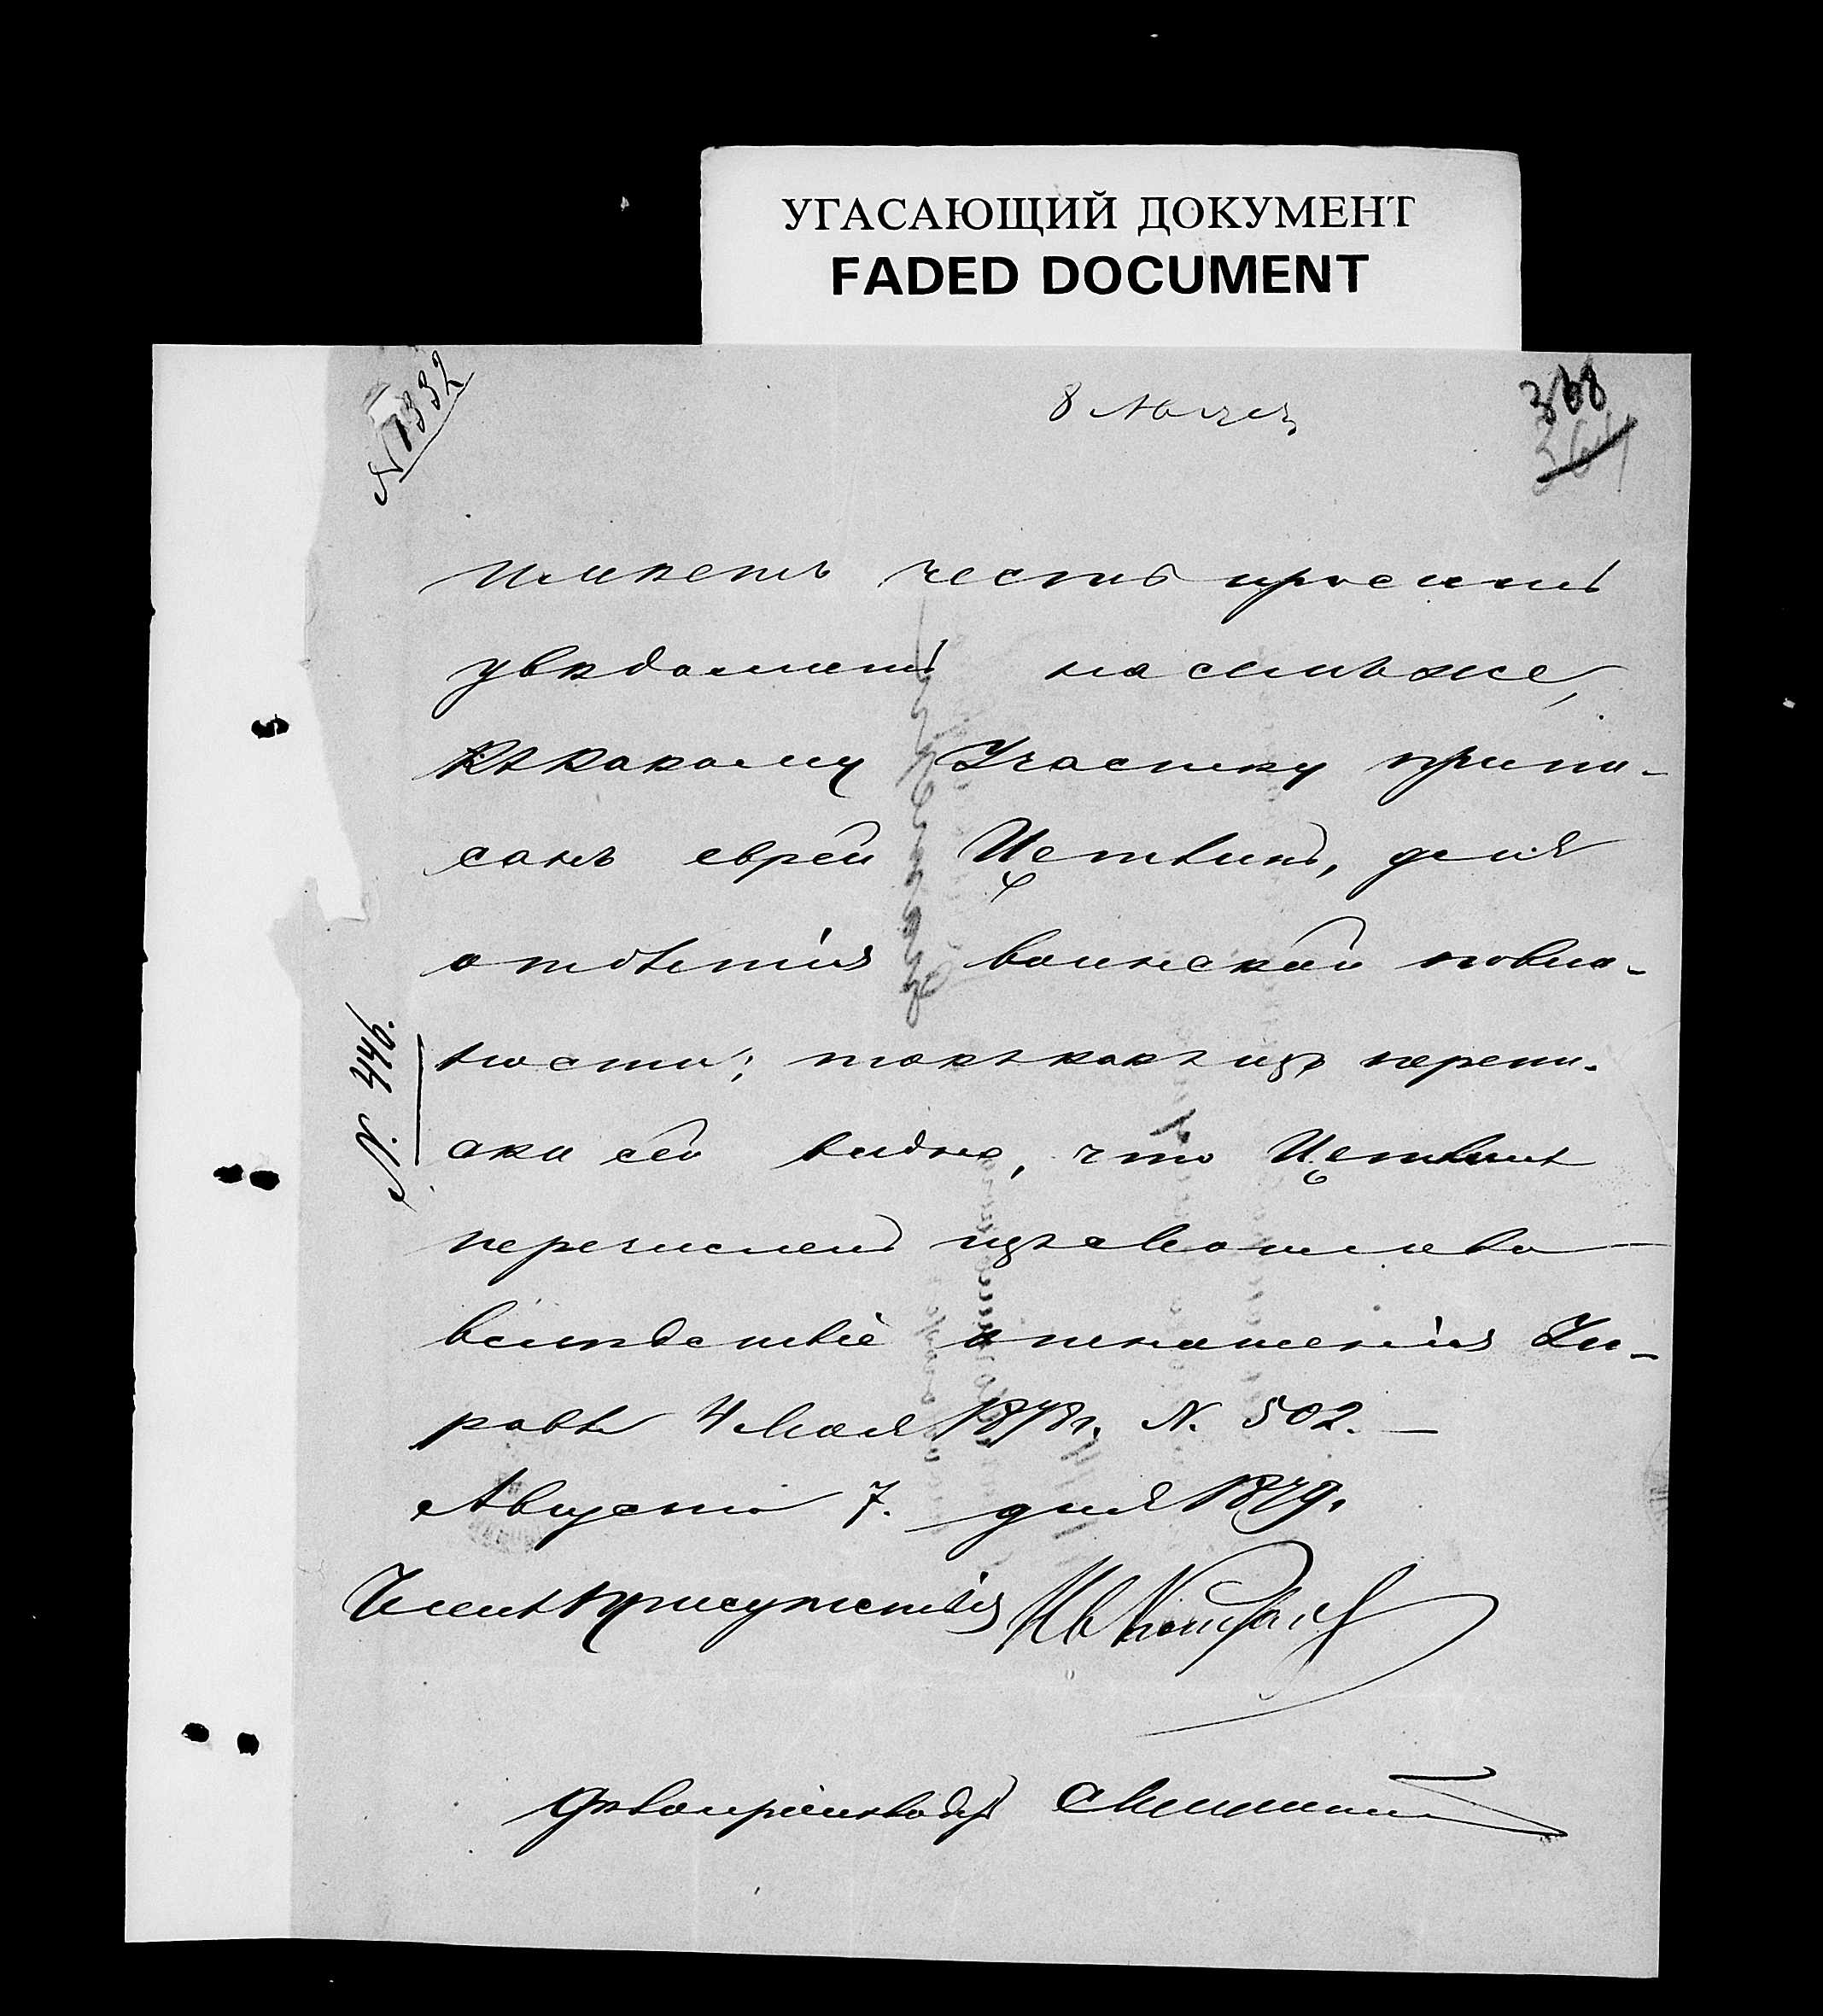 УГАСАЮЩИЙ ДОКУМЕНТ
FADED DOCUMENT
N 1332
368
364
имѣетъ честь просить
увѣдомить на семъ же,
къ какому Участку припи-
санъ еврей Цетвинъ, для
отбытія воинской повин-
ности; такъ какъ изъ перепи-
ски сей видно, что Цетвинъ
перечисленъ изъ
вслѣдствіе отношенія Уп-
равы 4 Мая 1878 г. N. 502. —
N. 446.
Августа 7. дня 1879.
Членъ Присутствія
Дѣлопроизводъ